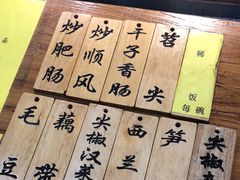 炒肥肠
炒顺风
千子香肠
苕尖
稀饭
每碗
毛豆
藕带
尖椒汉菜
西兰
笋
尖椒